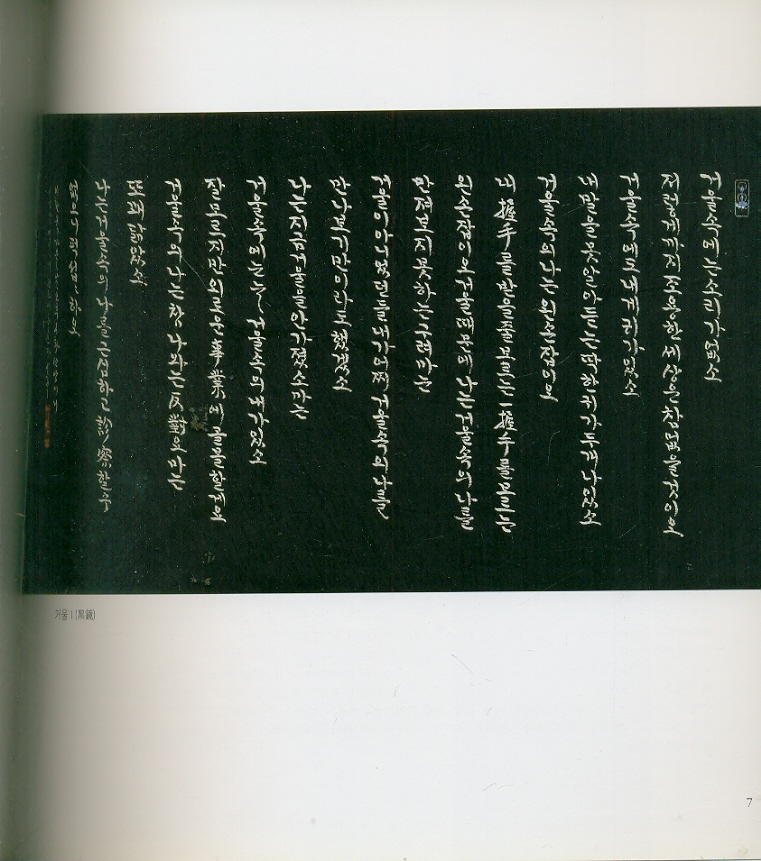 거울속에는소리가없소
저렇게까지조용한세상은참없을것이오
거울속에도내게귀가있소
내말을못알아듣는딱한귀가두개나있소
거울속의나는왼손잡이오
내握手를받을줄모르는―握手를모르는
왼손잡이오거울때문에나는거울속의나를
만져보지못하는구려마는
거울이아니었던들내가어찌거울속의나를
만나보기만이라도했겠소
나는지금거울을안가졌소마는
거울속에는늘거울속의내가있소
잘모르지만외로운事業에골몰할게요
거울속의나는참나와는反對요마는
또꽤닮았소
나는거울속의나를근심하고診察할수
없으니퍽섭섭하오
거울 1 (黑鏡)
7